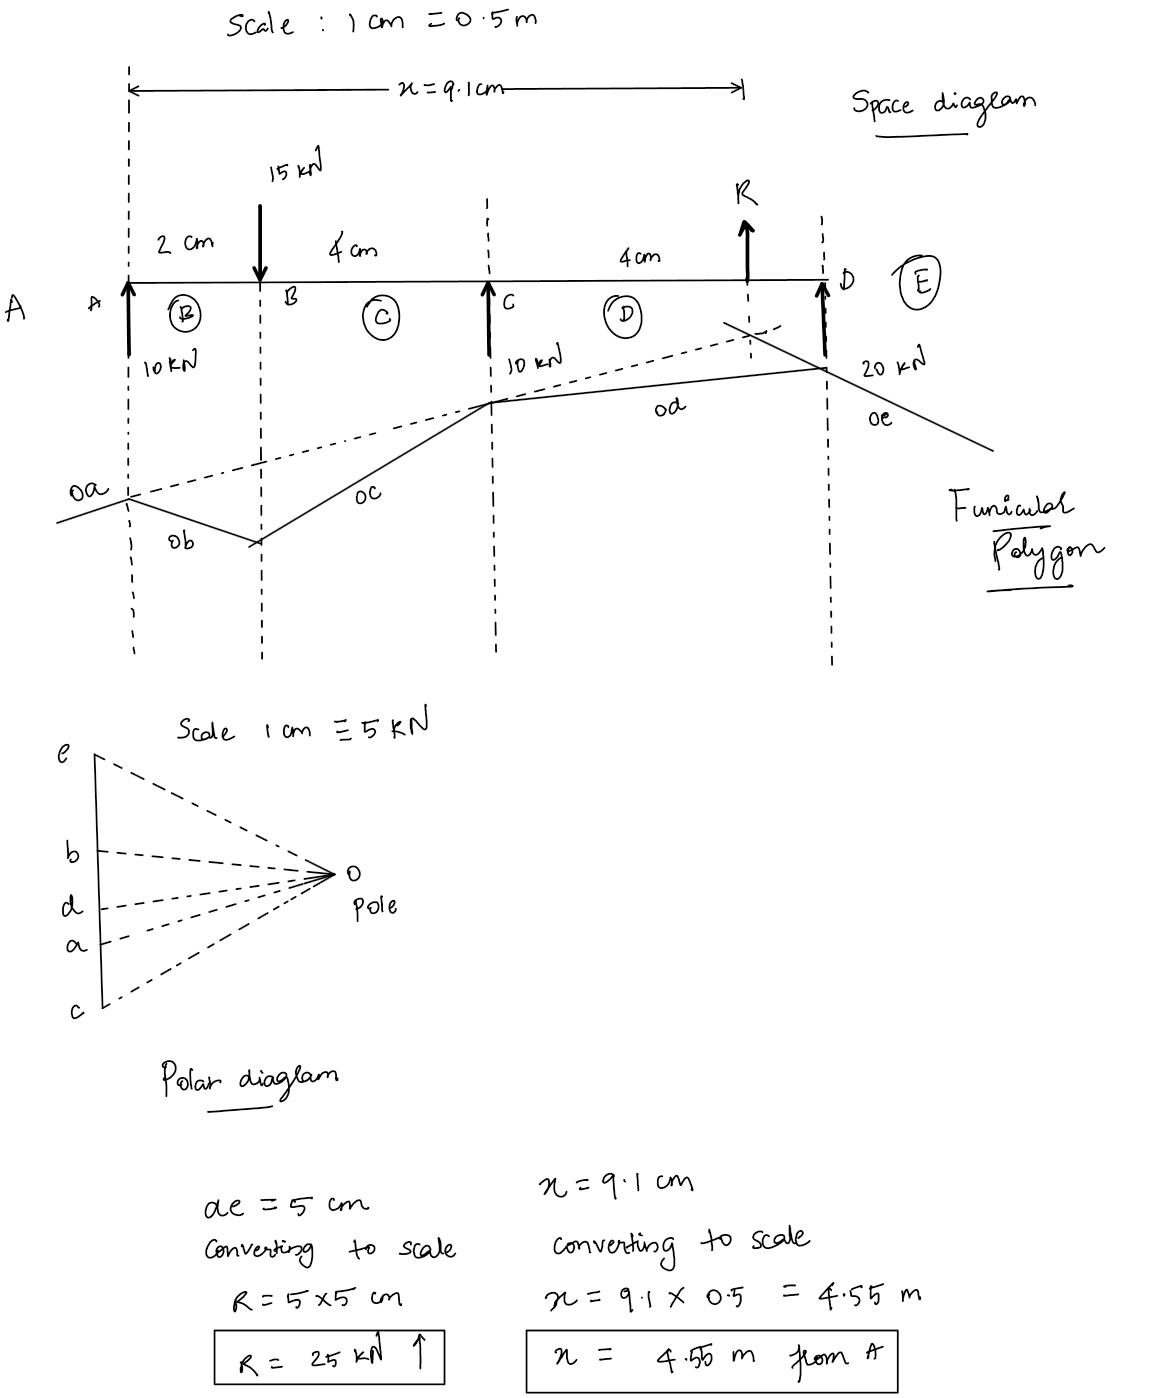 Scale : 1 cm = 0.5 m
x = 9.1 cm
Space diagram
15 kN
R
2 cm
4 cm
4 cm
A
A
B
B
C
C
D
D
E
10 KN
10 kN
20 kN
oa
ob
oc
od
oe
Funicular
Polygon
Scale 1 cm ≡ 5 KN
e
b
d
a
c
O
Pole
Polar diagram
ae = 5 cm
Converting to scale
R = 5 x 5 cm
R = 25 kN ↑
x = 9.1 cm
converting to scale
x = 9.1 x 0.5 = 4.55 m
x = 4.55 m from A